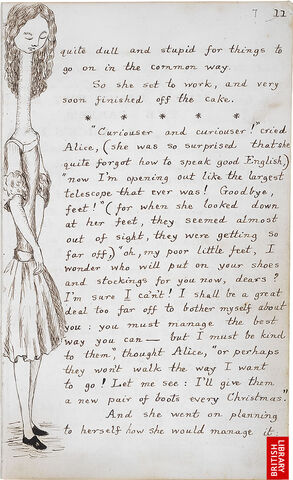 7 11
quite dull and stupid for things to
go on in the common way.
So she set to work, and very
soon finished off the cake.
* * * * * *
"Curiouser and curiouser!" cried
Alice, (she was so surprised that she
quite forgot how to speak good English,)
"now I'm opening out like the largest
telescope that ever was! Goodbye,
feet!" (for when she looked down
at her feet, they seemed almost
out of sight, they were getting so
far off,) "oh, my poor little feet, I
wonder who will put on your shoes
and stockings for you now, dears?
I'm sure I can't! I shall be a great
deal too far off to bother myself about
you: you must manage the best
way you can — but I must be kind
to them", thought Alice, "or perhaps
they won't walk the way I want
to go! Let me see: I'll give them
a new pair of boots every Christmas."
And she went on planning
to herself how she would manage it:
BRITISH
LIBRARY